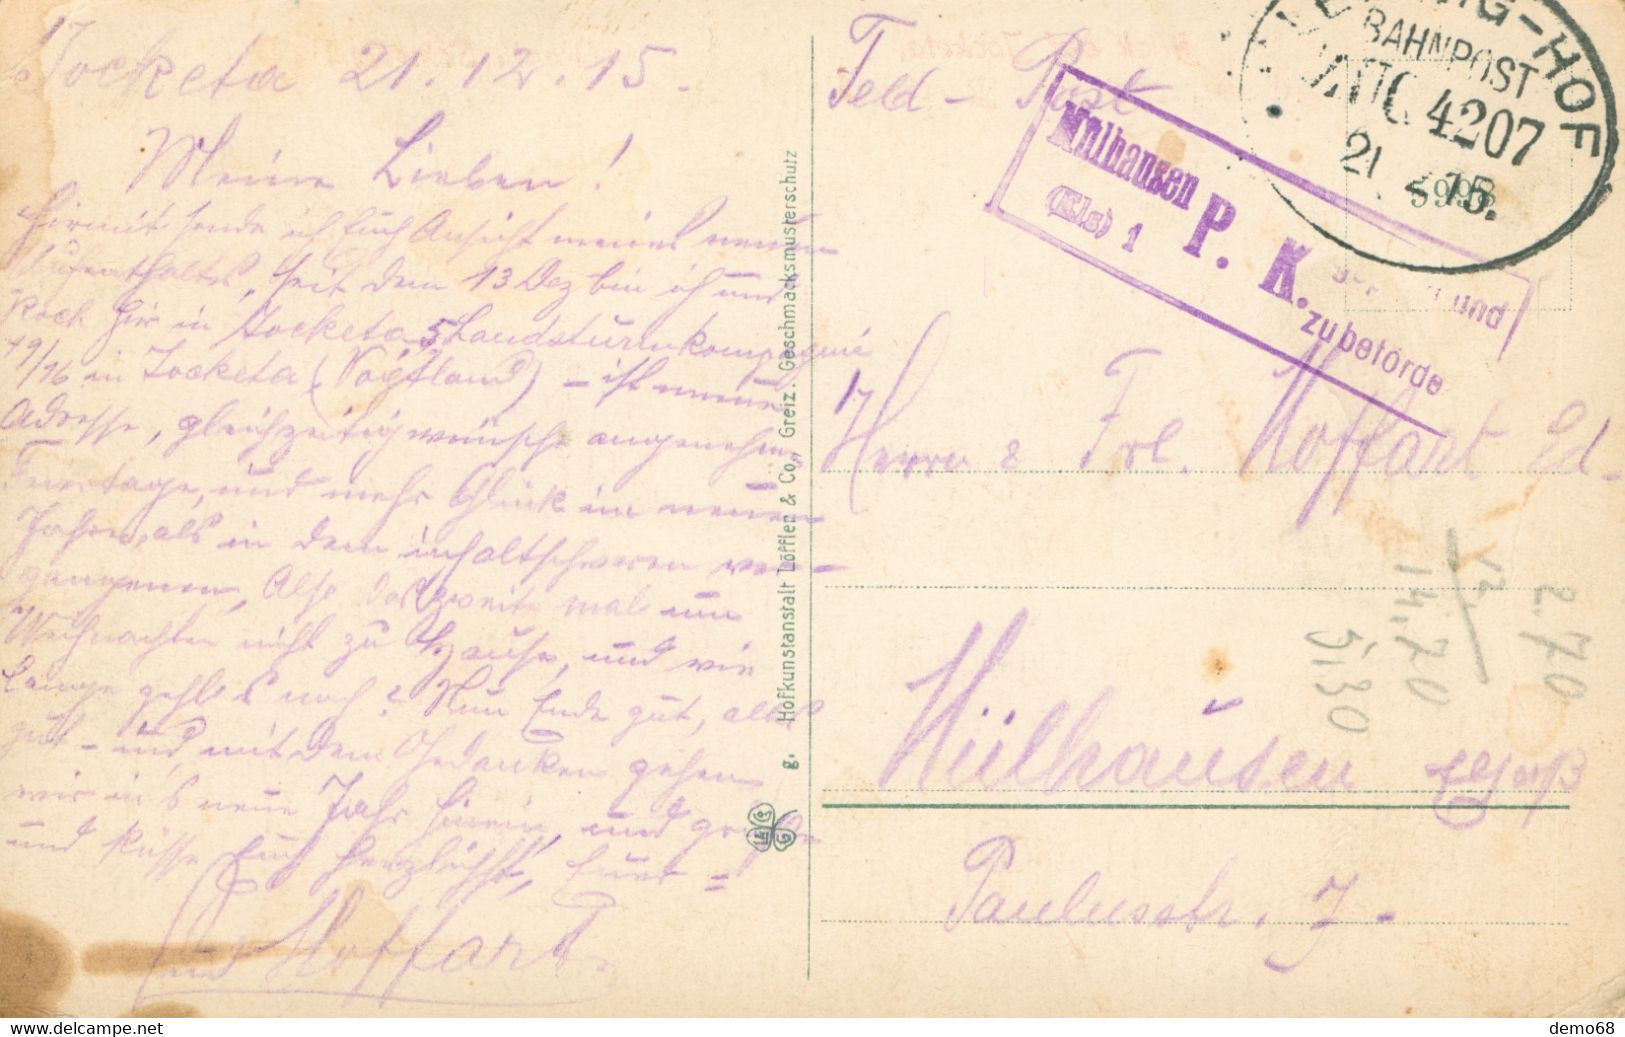 Jocketa 21.12.15.
Meine Lieben!
Hiermit sende ich Euch Ansicht meines neuen
Aufenthaltes, seit dem 13 Dez bin ich und
Koch hir in Jocketa 5 Landsturmkompagnie
19/16 in Jocketa (Vogtland) – ist meine
Adresse, gleichzeitig wünsche angenehme
Feiertage, und mehr Glück im neuen
Jahre, als in dem inhaltschweren ver-
gangenen, Also das zweite mal um
Weihnachten nicht zu Hause, und wie
Lange gehts noch? Nun Ende gut, alles
gut – und mit dem Gedanken gehen
wir in's neue Jahr hinein, und grüße
und küsse Euch herzlichst, Euer =
Ed Hoffart.
g. Hofkunstanstalt Löffler & Co., Greiz. Geschmacksmusterschutz
L & C G
Feld – Post
Mülhausen
(Els) 1
P. K.
und
zu beförde
G–HOF
BAHNPOST
ZUG 4207
21 15.
Herrn & Frl. Hoffart Ed-
Mülhausen Elsaß
Paulusstr. 7-
2.70
12
14,20
5,30
demo68